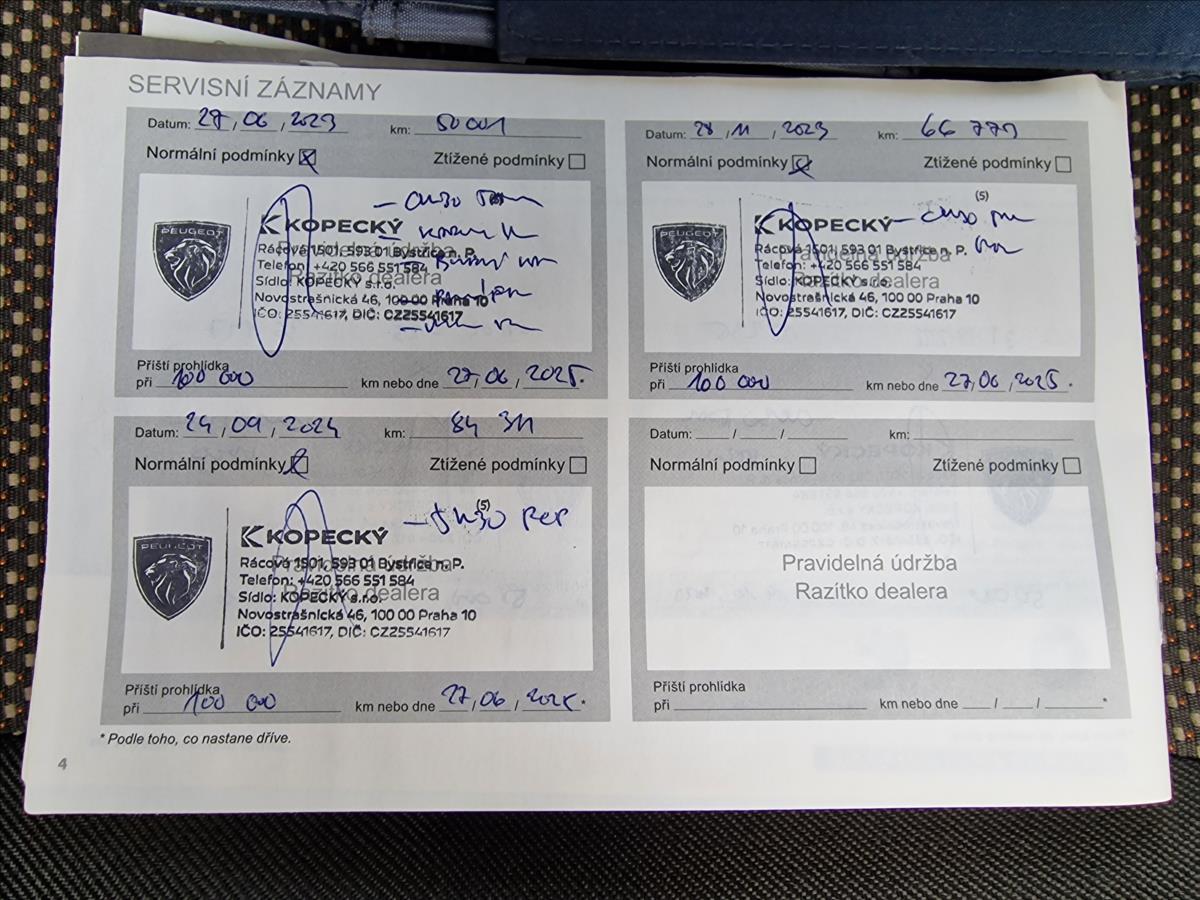 SERVISNÍ ZÁZNAMY
Datum: 27 / 06 / 2023 km: 50 001
Normální podmínky Ztížené podmínky
PEUGEOT
KOPECKÝ
Rácová 1501, 593 01 Bystřice n. P.
Telefon: +420 566 551 584
Sídlo: KOPECKÝ s.r.o.
Novostrašnická 46, 100 00 Praha 10
IČO: 25541617, DIČ: CZ25541617
Pravidelná údržba
Razítko dealera
Příští prohlídka
při 100 000 km nebo dne 27 / 06 / 2025.
Datum: 28 / 11 / 2023 km: 66
Normální podmínky Ztížené podmínky
(5)
PEUGEOT
KOPECKÝ
Rácová 1501, 593 01 Bystřice n. P.
Telefon: +420 566 551 584
Sídlo: KOPECKÝ s.r.o.
Novostrašnická 46, 100 00 Praha 10
IČO: 25541617, DIČ: CZ25541617
Pravidelná údržba
Razítko dealera
Příští prohlídka
při 100 000 km nebo dne 27 / 06 / 2025.
Datum: 24 / 09 / 2024 km: 84 311
Normální podmínky Ztížené podmínky
(5)
- 5W30
PEUGEOT
KOPECKÝ
Rácová 1501, 593 01 Bystřice n. P.
Telefon: +420 566 551 584
Sídlo: KOPECKÝ s.r.o.
Novostrašnická 46, 100 00 Praha 10
IČO: 25541617, DIČ: CZ25541617
Pravidelná údržba
Razítko dealera
Příští prohlídka
při 100 000 km nebo dne 27 / 06 / 2025 *
Datum: / / km:
Normální podmínky Ztížené podmínky
Pravidelná údržba
Razítko dealera
Příští prohlídka
při km nebo dne / / *
* Podle toho, co nastane dříve.
4